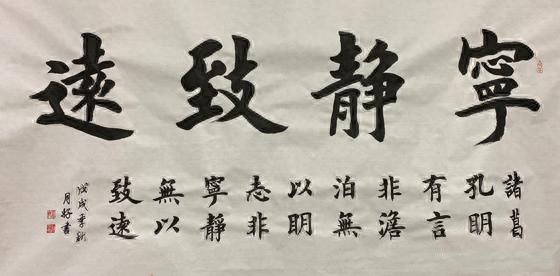 寧靜致遠
諸葛
孔明
有言
非澹
泊無
以明
志非
寧靜
無以
致遠
戊戌季秋
月好書